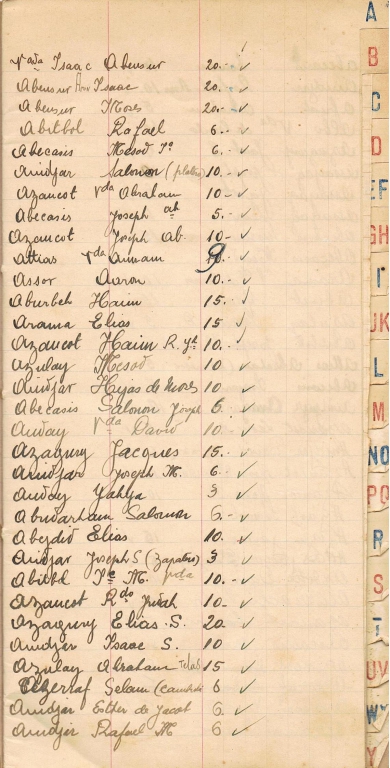 Vda Isaac Abensur 20.- ✓
Abensur Isaac 20.- ✓
Abensur Moses 20.- ✓
Abitbol Rafael 6.- ✓
Abecasis Mesod 6.- ✓
Amdjar Salomon (platero) 10.- ✓
Azancot Vda Abraham 10.- ✓
Abecasis Joseph 5.- ✓
Azancot Joseph Ab. 10.- ✓
Attias Vda Amram 9 ✓
Assor Aaron 10.- ✓
Aburbeh Haim 15.- ✓
Arama Elias 15 ✓
Azancot Haim R. 10.- ✓
Azulay Mesod 10 ✓
Amdjar Hijas de Moses 10 ✓
Abecasis Salomon Joseph 6.- ✓
Auday Vda David 10.- ✓
Azagury Jacques 15.- ✓
Amdjar Joseph M. 6.- ✓
Auday Yahya 3 ✓
Abudarham Salomon 6.- ✓
Abejdid Elias 10. ✓
Amdjar Joseph S (Zapatero) 3 ✓
Abitbol M. 10.- ✓
Azancot Rdo Judah 10.- ✓
Azagury Elias. S. 20 ✓
Amdjar Isaac S. 10 ✓
Azulay Abraham Telas 15 ✓
Selam 6 ✓
Amdjar Esther de Jacob 6 ✓
Amdjar Rafael M 6 ✓
A
B
C
D
EF
GH
I
JK
L
M
NO
PQ
R
S
T
UV
WX
Y